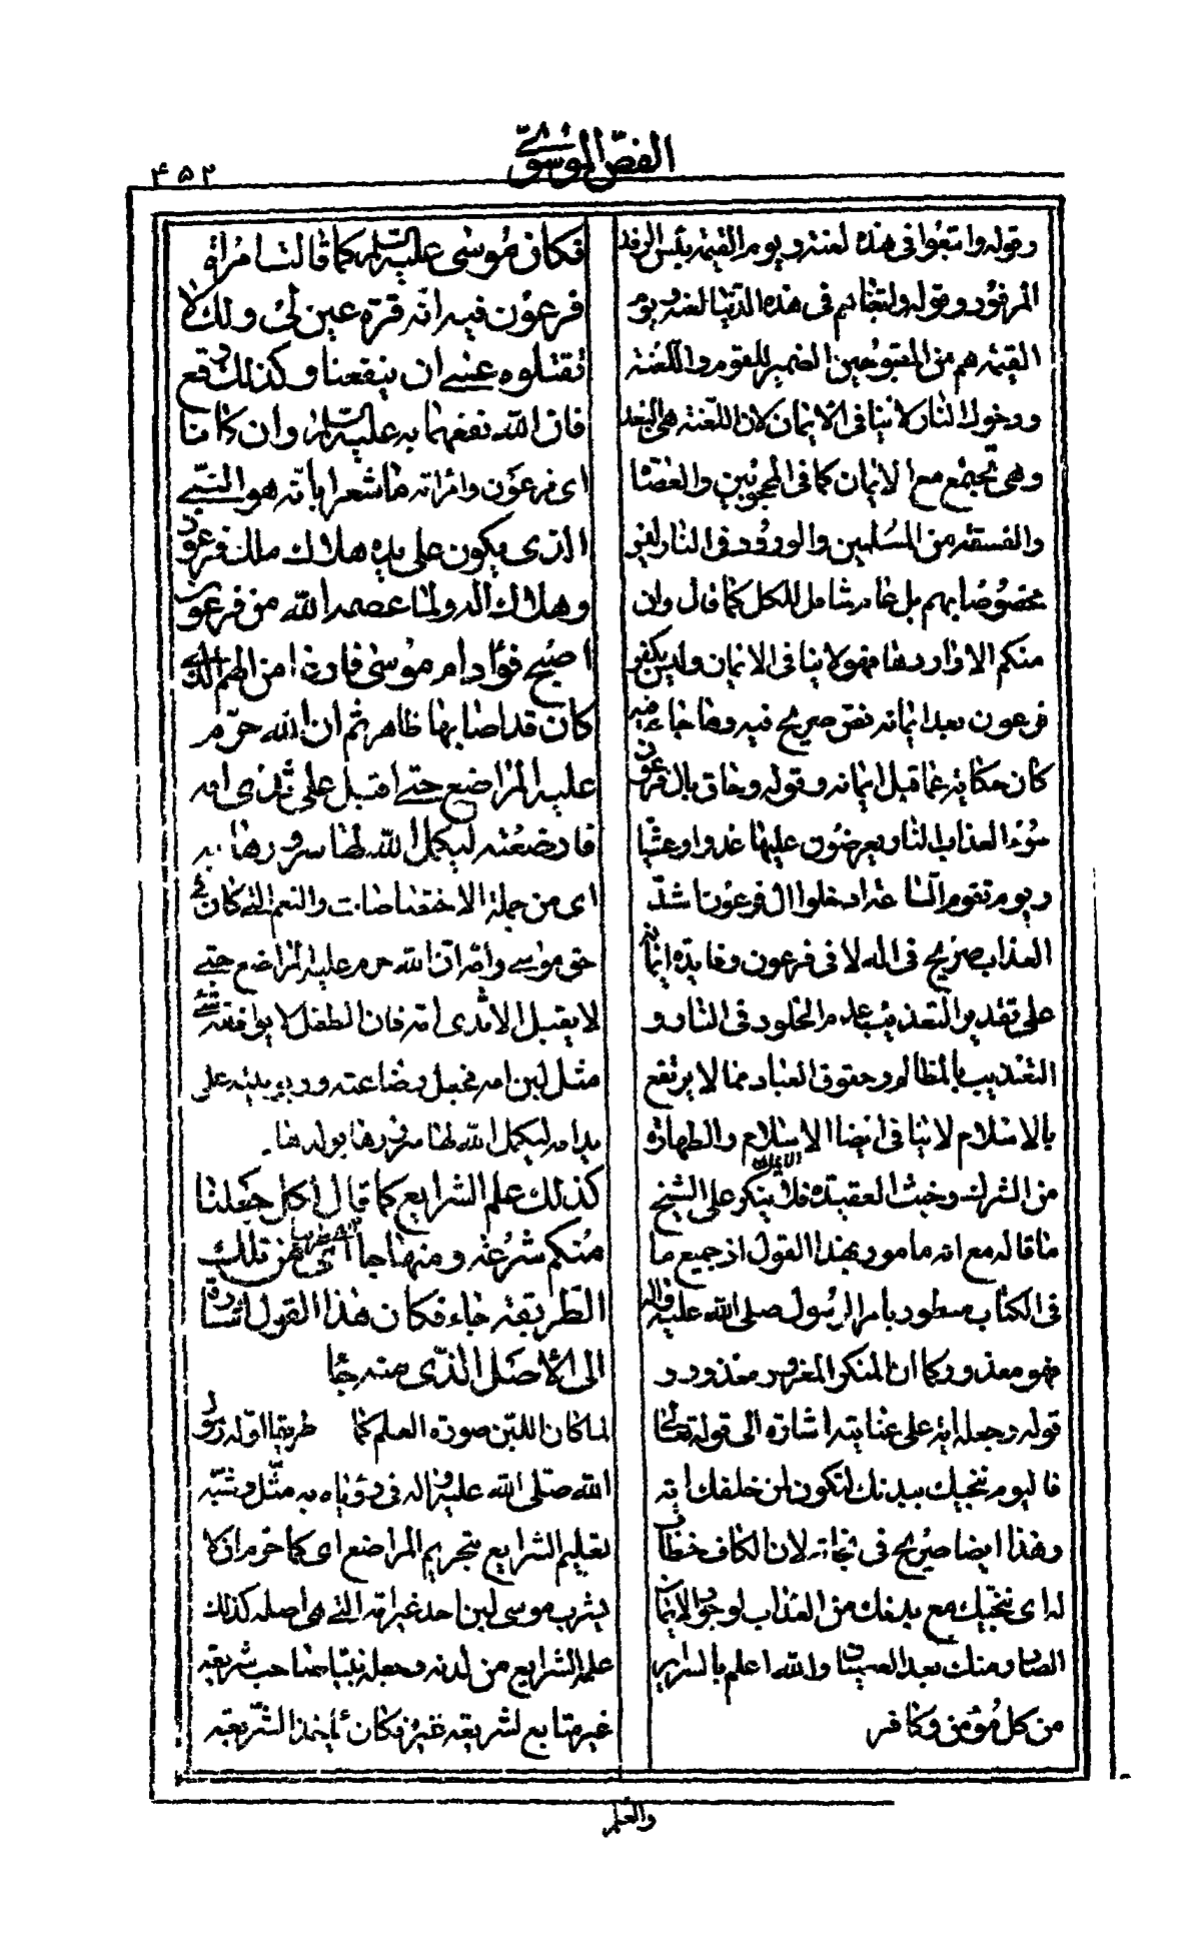 الفصّ الموسوىّ
۴۵۲
وقوله واتبعوا فى هذه لعنة ويوم القيمة بئس الرفد
المرفود وقوله واتبعناهم فى هذه الدّنيا لعنة ويوم
القيمة هم من المقبوحين الضمير للقوم واللّعنة
ودخول النار لا ينافى الايمان لان اللّعنة هى البعد
وهى تجتمع مع الايمان كما فى المحجوبين والعصاة
والفسقة من المسلمين والورود فى النار ليس
مخصوصا بهم بل عام شامل للكل كما قال وان
منكم الا واردها فهو لا ينافى الايمان وليس بكفر
فرعون بعد ايمانه نصّ صريح فيه وما جاء فيه
كان حكاية عما قبل ايمانه وقوله وحاق بال فرعون
سوء العذاب النار يعرضون عليها غدوا وعشيا
ويوم تقوم الساعة ادخلوا ال فرعون اشدّ
العذاب صريح فى اله لا فى فرعون وفايدة ايمانه
على تقدير التعذيب عدم الخلود فى النار و
التعذيب بالمظالم وحقوق العباد مما لا يرتفع
بالاسلام لا ينافى ايضا الاسلام والطهارة
الايمان
من الشرك وخبث العقيدة فلا ينكر على الشيخ
ما قاله مع انه مامور بهذا القول اذ جميع ما
فى الكتاب مسطور بامر الرسول صلى الله عليه واله
فهو معذور كما ان المنكر المغرور معذور و
قوله وجعله اية على عنايته اشارة الى قوله تعالى
فاليوم ننجيك ببدنك لتكون لمن خلفك اية
وهذا ايضا صريح فى نجاته لان الكاف خطاب
له اى ننجيك مع بدنك من العذاب لوجود الايمان
الصادر منك بعد العصيان والله اعلم بالسراير
من كل مؤمن وكافر
فكان موسى عليه السلام كما قالت امراة
فرعون فيه انه قرة عين لى ولك لا
تقتلوه عسى ان ينفعنا وكذلك وقع
فان الله نفعهما به عليه السلام وان كانا
اى فرعون وامراته ما شعرا بانه هو النبى
الذى يكون على يده هلاك ملك فرعون
وهلاك اله ولما عصمه الله من فرعون
اصبح فؤاد ام موسى فارغا من الهم الذى
كان قد اصابها ظاهر ثم ان الله حرّم
عليه المراضع حتى اقبل على ثدى امه
فارضعته ليكمل الله لها سرورها به
اى من جملة الاختصاصات والنعم التى كان فى
حق موسى وامه ان الله حرم عليه المراضع حتى
لا يقبل الا ثدى امه فان الطفل لا يوافقه شئ
مثل لبن امه فجعل رضاعته وتربيته على
يد امه ليكمل الله لها سرورها بولدها
كذلك علم الشرايع كما قال لكل جعلنا
منكم شرعة ومنهاجا اى طريقا من تلك
الطريقة جاء فكان هذا القول اشارة
الى الاصل الذى منه جا
لما كان اللبن صورة العلم كما طريقا اوله رسول
الله صلّى الله عليه واله فى رؤياه به مثّل وشبّه
تعليم الشرايع بتحريم المراضع اى كما حرم ان لا
يشرب موسى لبن احد غير امه التى هى اصله كذلك
علم الشرايع من لدنه وجعله نبيا صاحب شريعة
غير متابع لشريعة غيره فكان ياخذ الشريعة
والعلم